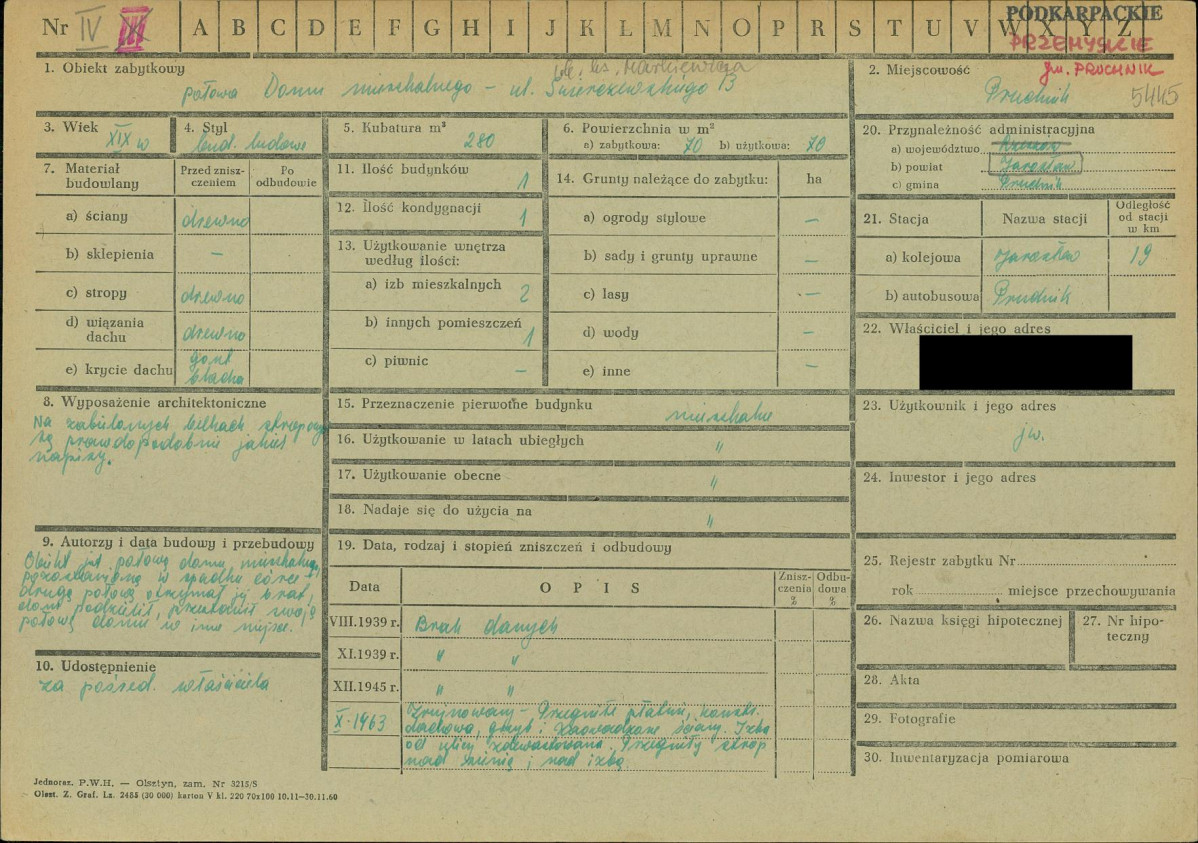 Nr IV III A B C D E F G H I J K L Ł M N O P R S T U V W X Y Z
PODKARPACKIE
PRZEMYSKIE
gm. PRUCHNIK
5445
1. Obiekt zabytkowy
pl. ks. Markiewicza
połowa Domu mieszkalnego – ul. Świerczewskiego 13
2. Miejscowość
Pruchnik
3. Wiek
XIX w
4. Styl
bud. ludowe
5. Kubatura m³
280
6. Powierzchnia w m²
a) zabytkowa: 70 b) użytkowa: 70
7. Materiał budowlany
Przed znisz-
czeniem
Po
odbudowie
a) ściany drewno
b) sklepienia –
c) stropy drewno
d) wiązania
dachu drewno
e) krycie dachu gont
blacha
8. Wyposażenie architektoniczne
Na zabielanych belkach stropowych
są prawdopodobnie jakieś
napisy.
9. Autorzy i data budowy i przebudowy
Obiekt jest połową domu mieszkalnego
pozostawioną w spadku córce –
drugą połowę otrzymał jej brat,
dom podzielił, przestawił swoją
połowę domu w inne miejsce.
10. Udostępnienie
za pośred. właściciela
11. Ilość budynków 1
12. Ilość kondygnacji 1
13. Użytkowanie wnętrza
według ilości:
a) izb mieszkalnych 2
b) innych pomieszczeń 1
c) piwnic –
14. Grunty należące do zabytku: ha
a) ogrody stylowe –
b) sady i grunty uprawne –
c) lasy –
d) wody –
e) inne –
15. Przeznaczenie pierwotne budynku mieszkalne
16. Użytkowanie w latach ubiegłych "
17. Użytkowanie obecne "
18. Nadaje się do użycia na "
19. Data, rodzaj i stopień zniszczeń i odbudowy
Data O P I S Znisz-
czenia
% Odbu-
dowa
%
VIII.1939 r. Brak danych
XI.1939 r. " "
XII.1945 r. " "
X-1963 Zrujnowany – Przegniłe płatwie, konstr.
dachowa, grzyb i ściany. Izba
od ulicy zdewastowana. Przegniły strop
nad sienią i nad izbą
20. Przynależność administracyjna
a) województwo Rzeszów
b) powiat Jarosław
c) gmina Pruchnik
21. Stacja Nazwa stacji Odległość
od stacji
w km
a) kolejowa Jarosław 19
b) autobusowa Pruchnik
22. Właściciel i jego adres
23. Użytkownik i jego adres
jw.
24. Inwestor i jego adres
25. Rejestr zabytku Nr
rok miejsce przechowywania
26. Nazwa księgi hipotecznej
27. Nr hipo-
teczny
28. Akta
29. Fotografie
30. Inwentaryzacja pomiarowa
Jednoraz. P.W.H. — Olsztyn, zam. Nr 3215/S
Olszt. Z. Graf. Ls. 2485 (30 000) karton V kl. 220 70x100 10.11—30.11.60